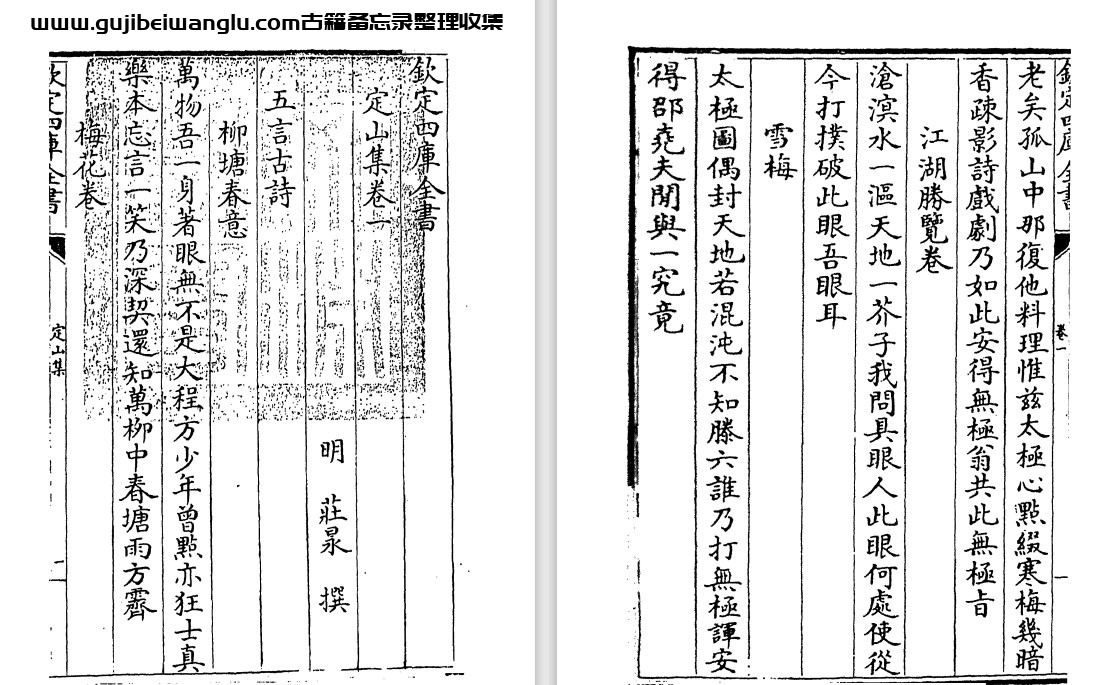 www.gujibeiwanglu.com古籍备忘录整理收集
欽定四庫全書
定山集卷一
明 莊㫤 撰
五言古詩
柳塘春意
萬物吾一身著眼無不是大程方少年曾點亦狂士真
樂本忘言一笑乃深契還知萬柳中春塘雨方霽
梅花卷
欽定四庫全書 定山集 一
欽定四庫全書 卷一 一
老矣孤山中那復他料理惟兹太極心點綴寒梅幾暗
香疎影詩戲劇乃如此安得無極翁共此無極㫖
江湖勝覽卷
滄溟水一漚天地一芥子我問具眼人此眼何處使從
今打撲破此眼吾眼耳
雪梅
太極圖偶封天地若混沌不知滕六誰乃打無極諢安
得邵堯夫聞與一究竟